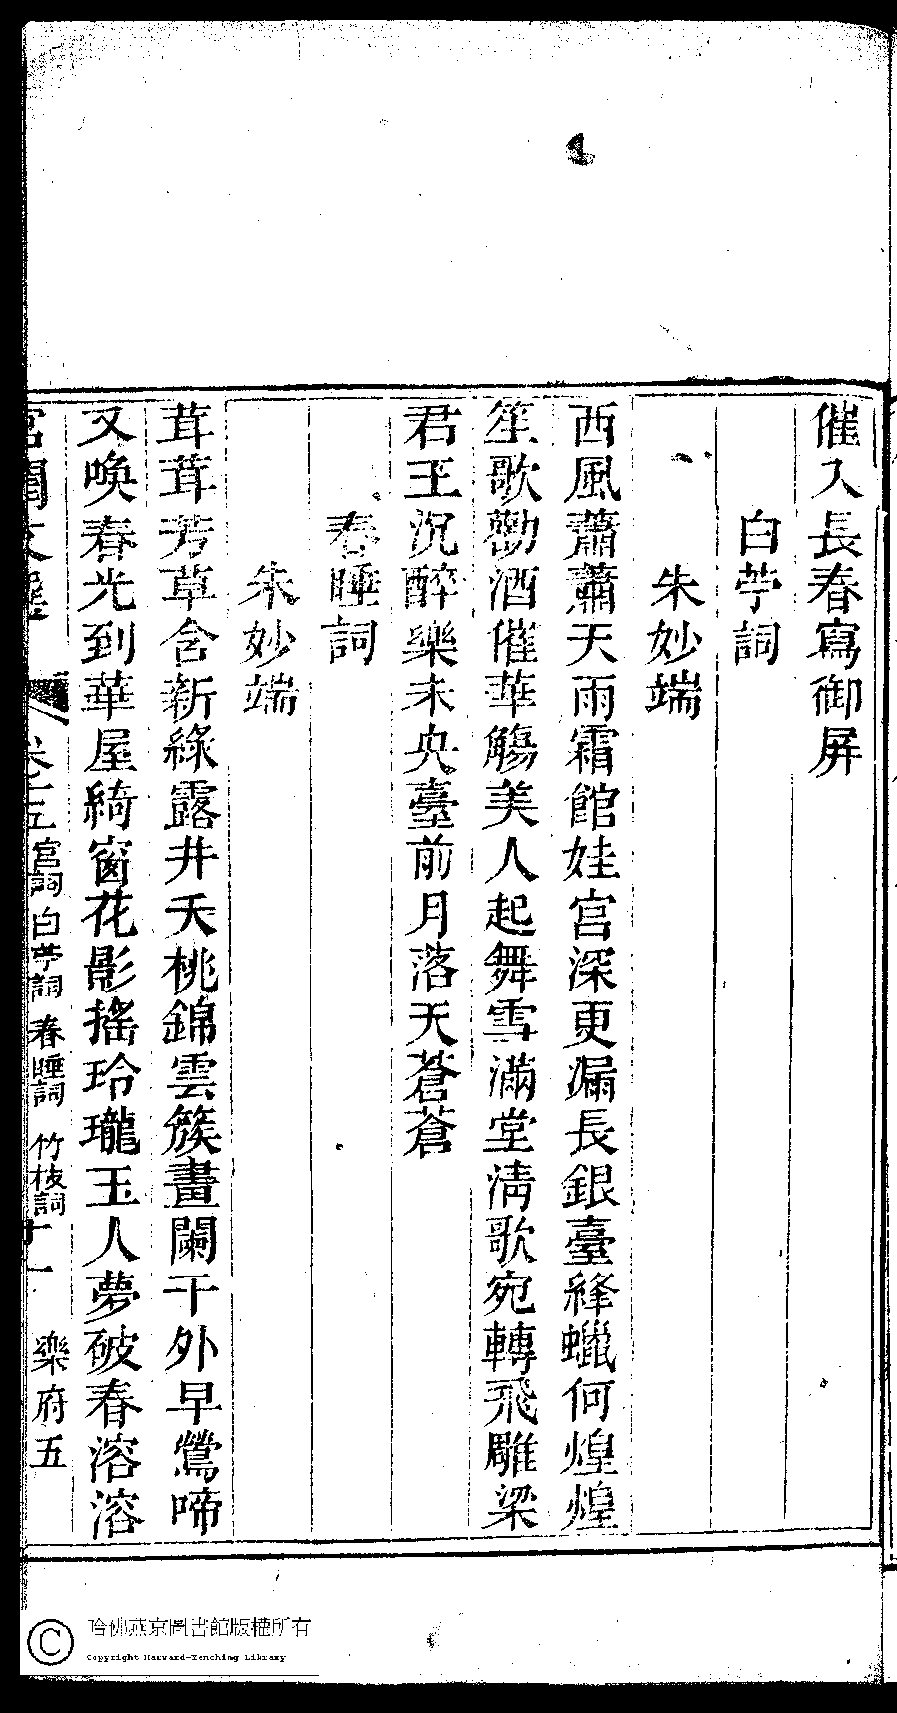 催入長春寫御屏
白苧詞
朱妙端
西風蕭蕭天雨霜館娃宮深更漏長銀臺絳蠟何煌煌
笙歌勸酒催華觴美人起舞雪滿堂清歌宛轉飛雕梁
君王沉醉樂未央臺前月落天蒼蒼
春睡詞
朱妙端
茸茸芳草含新綠露井夭桃錦雲簇畫闌干外早鶯啼
又喚春光到華屋綺窗花影搖玲瓏玉人夢破春溶溶
宮閨文選 卷之五 宮詞 白苧詞 春睡詞 竹枝詞 十一 樂府五
哈佛燕京圖書館版權所有
Copyright Harvard-Yenching Library